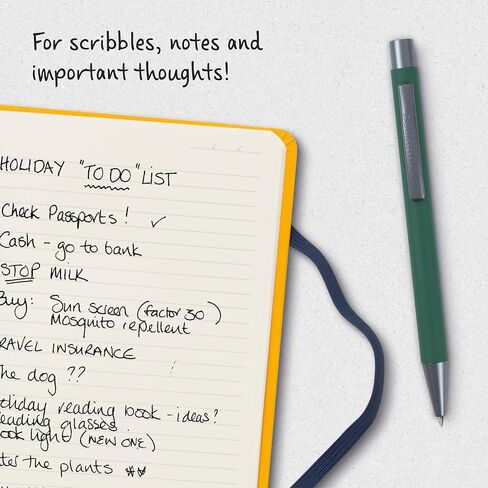 For scribbles, notes and
important thoughts!
HOLIDAY "TO DO" LIST
Check Passports! ✓
Cash - go to bank
STOP MILK
Buy: Sun screen (factor 30)
Mosquito repellent
RAVEL INSURANCE
he dog ??
reading book - ideas?
eading glasses
ook light (NEW ONE)
ter the plants